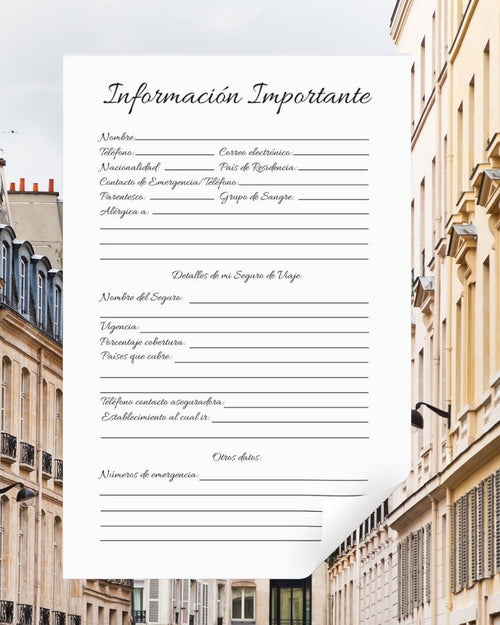 Información Importante
Nombre:
Teléfono: Correo electrónico:
Nacionalidad País de Residencia:
Contacto de Emergencia/Teléfono:
Parentesco: Grupo de Sangre:
Alérgica a:
Detalles de mi Seguro de Viaje:
Nombre del Seguro:
Vigencia:
Porcentaje cobertura:
Países que cubre:
Teléfono contacto aseguradora:
Establecimiento al cual ir:
Otros datos:
Números de emergencia: